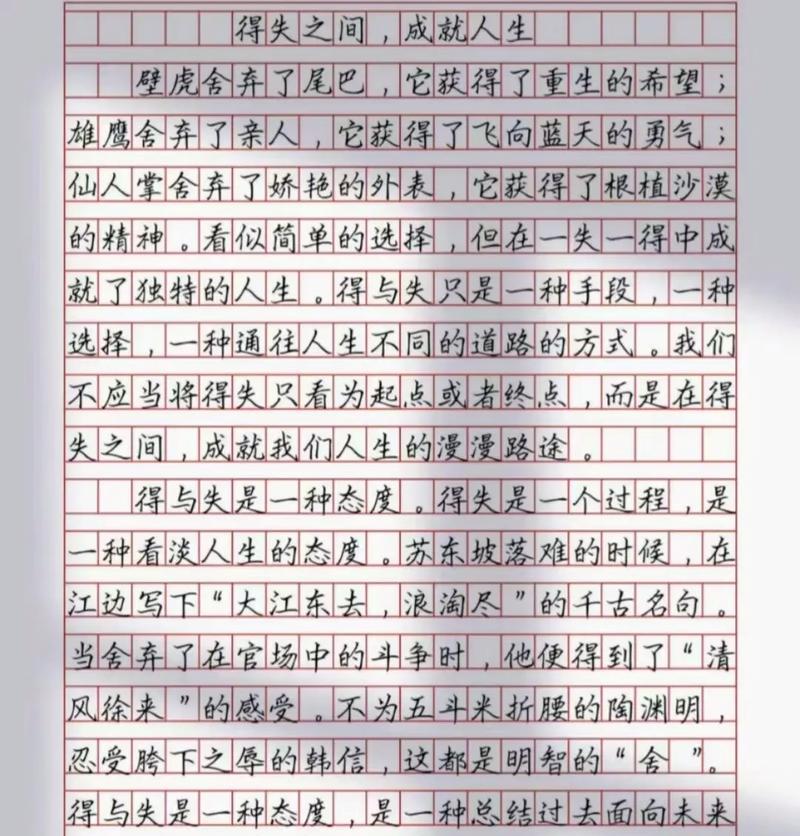 得失之间，成就人生
壁虎舍弃了尾巴，它获得了重生的希望；
雄鹰舍弃了亲人，它获得了飞向蓝天的勇气；
仙人掌舍弃了娇艳的外表，它获得了根植沙漠
的精神。看似简单的选择，但在一失一得中成
就了独特的人生。得与失只是一种手段，一种
选择，一种通往人生不同的道路的方式。我们
不应当将得失只看为起点或者终点，而是在得
失之间，成就我们人生的漫漫路途。
得与失是一种态度。得失是一个过程，是
一种看淡人生的态度。苏东坡落难的时候，在
江边写下“大江东去，浪淘尽”的千古名句。
当舍弃了在官场中的斗争时，他便得到了“清
风徐来”的感受。不为五斗米折腰的陶渊明，
忍受胯下之辱的韩信，这都是明智的“舍”。
得与失是一种态度，是一种总结过去面向未来